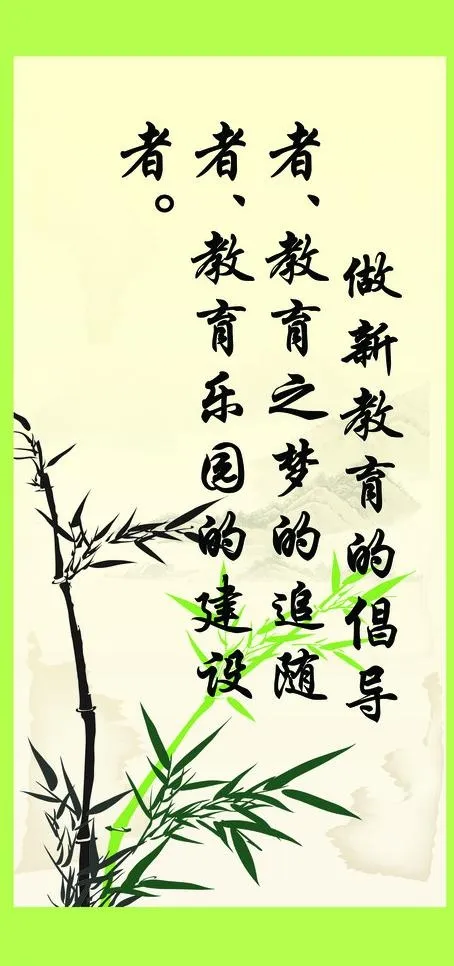 做新教育的倡导
者、教育之梦的追随
者、教育乐园的建设
者。